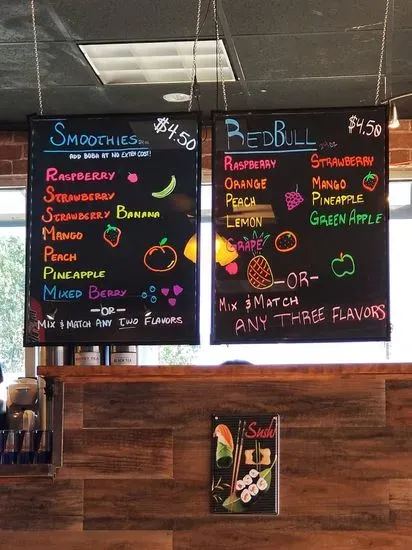 Smoothies
$4.50
ADD BOBA AT NO EXTRA COST!
Raspberry
Strawberry
Strawberry Banana
Mango
Peach
Pineapple
Mixed Berry
-OR-
Mix & Match Any Two Flavors
RedBull
$4.50
Raspberry
Orange
Peach
Lemon
Grape
Strawberry
Mango
Pineapple
Green Apple
-OR-
Mix & Match
Any Three Flavors
BLACK TEA
Sushi